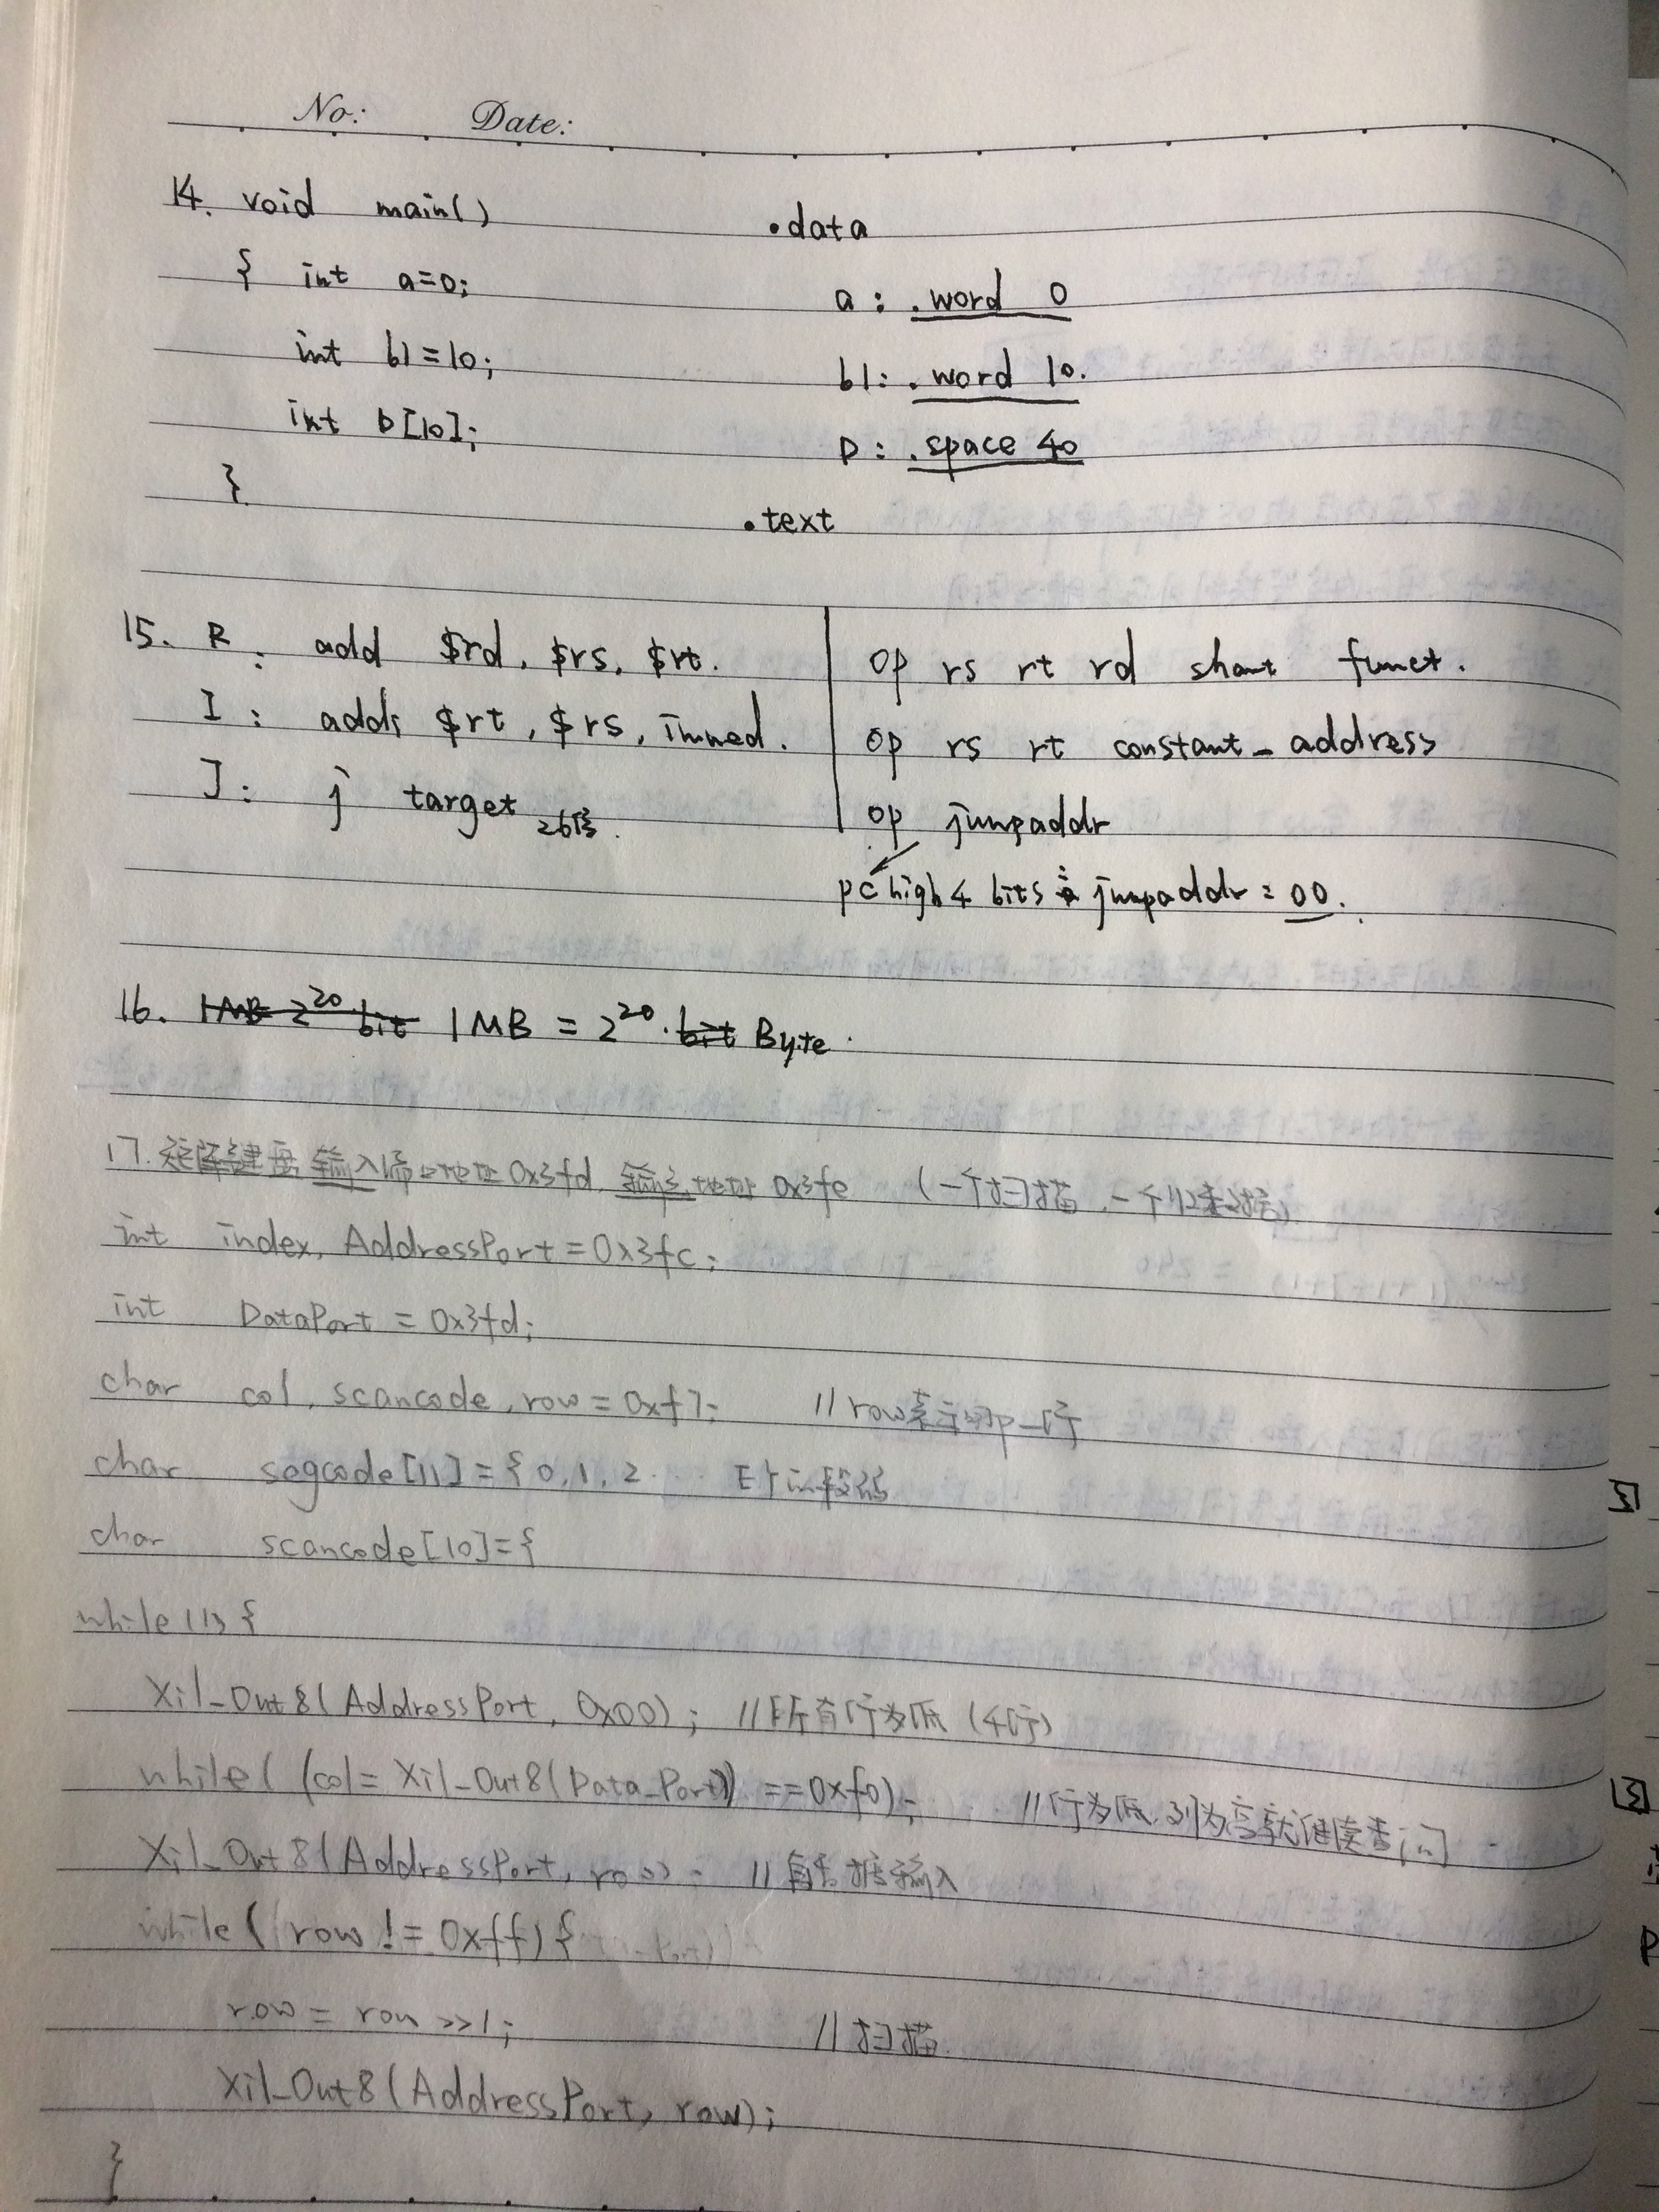 No: Date:
14. void main() .data
{ int a=0; a: .word 0
int b1=10; b1: .word 10.
int b[10]; b: .space 40
}
.text
15. R: add $rd, $rs, $rt. op rs rt rd shamt funct.
I: addi $rt, $rs, immed. op rs rt constant_address
J: j target 26位. op jumpaddr
pc high 4 bits : jumpaddr : 00.
16. 1MB 2^20 bit 1MB = 2^20 bit Byte.
17. 矩阵键盘 输入端口地址 0x3fd, 输出地址 0x3fe (一个扫描, 一个收数据)
int index, AddressPort = 0x3fc;
int DataPort = 0x3fd;
char col, scancode, row = 0xf7; //row表示哪一行
char segcode[11] = {0,1,2 段码
char scancode[10]={
while(1){
Xil_Out8(AddressPort, 0x00); //所有行为低 (4行)
while( (col= Xil_Out8(Data_Port)) ==0xf0); //行为低,列为高就继续查询
Xil_Out8(AddressPort, row); // 输入
while( row != 0xff) {
row = row >>1; //扫描
Xil_Out8(AddressPort, row);
}